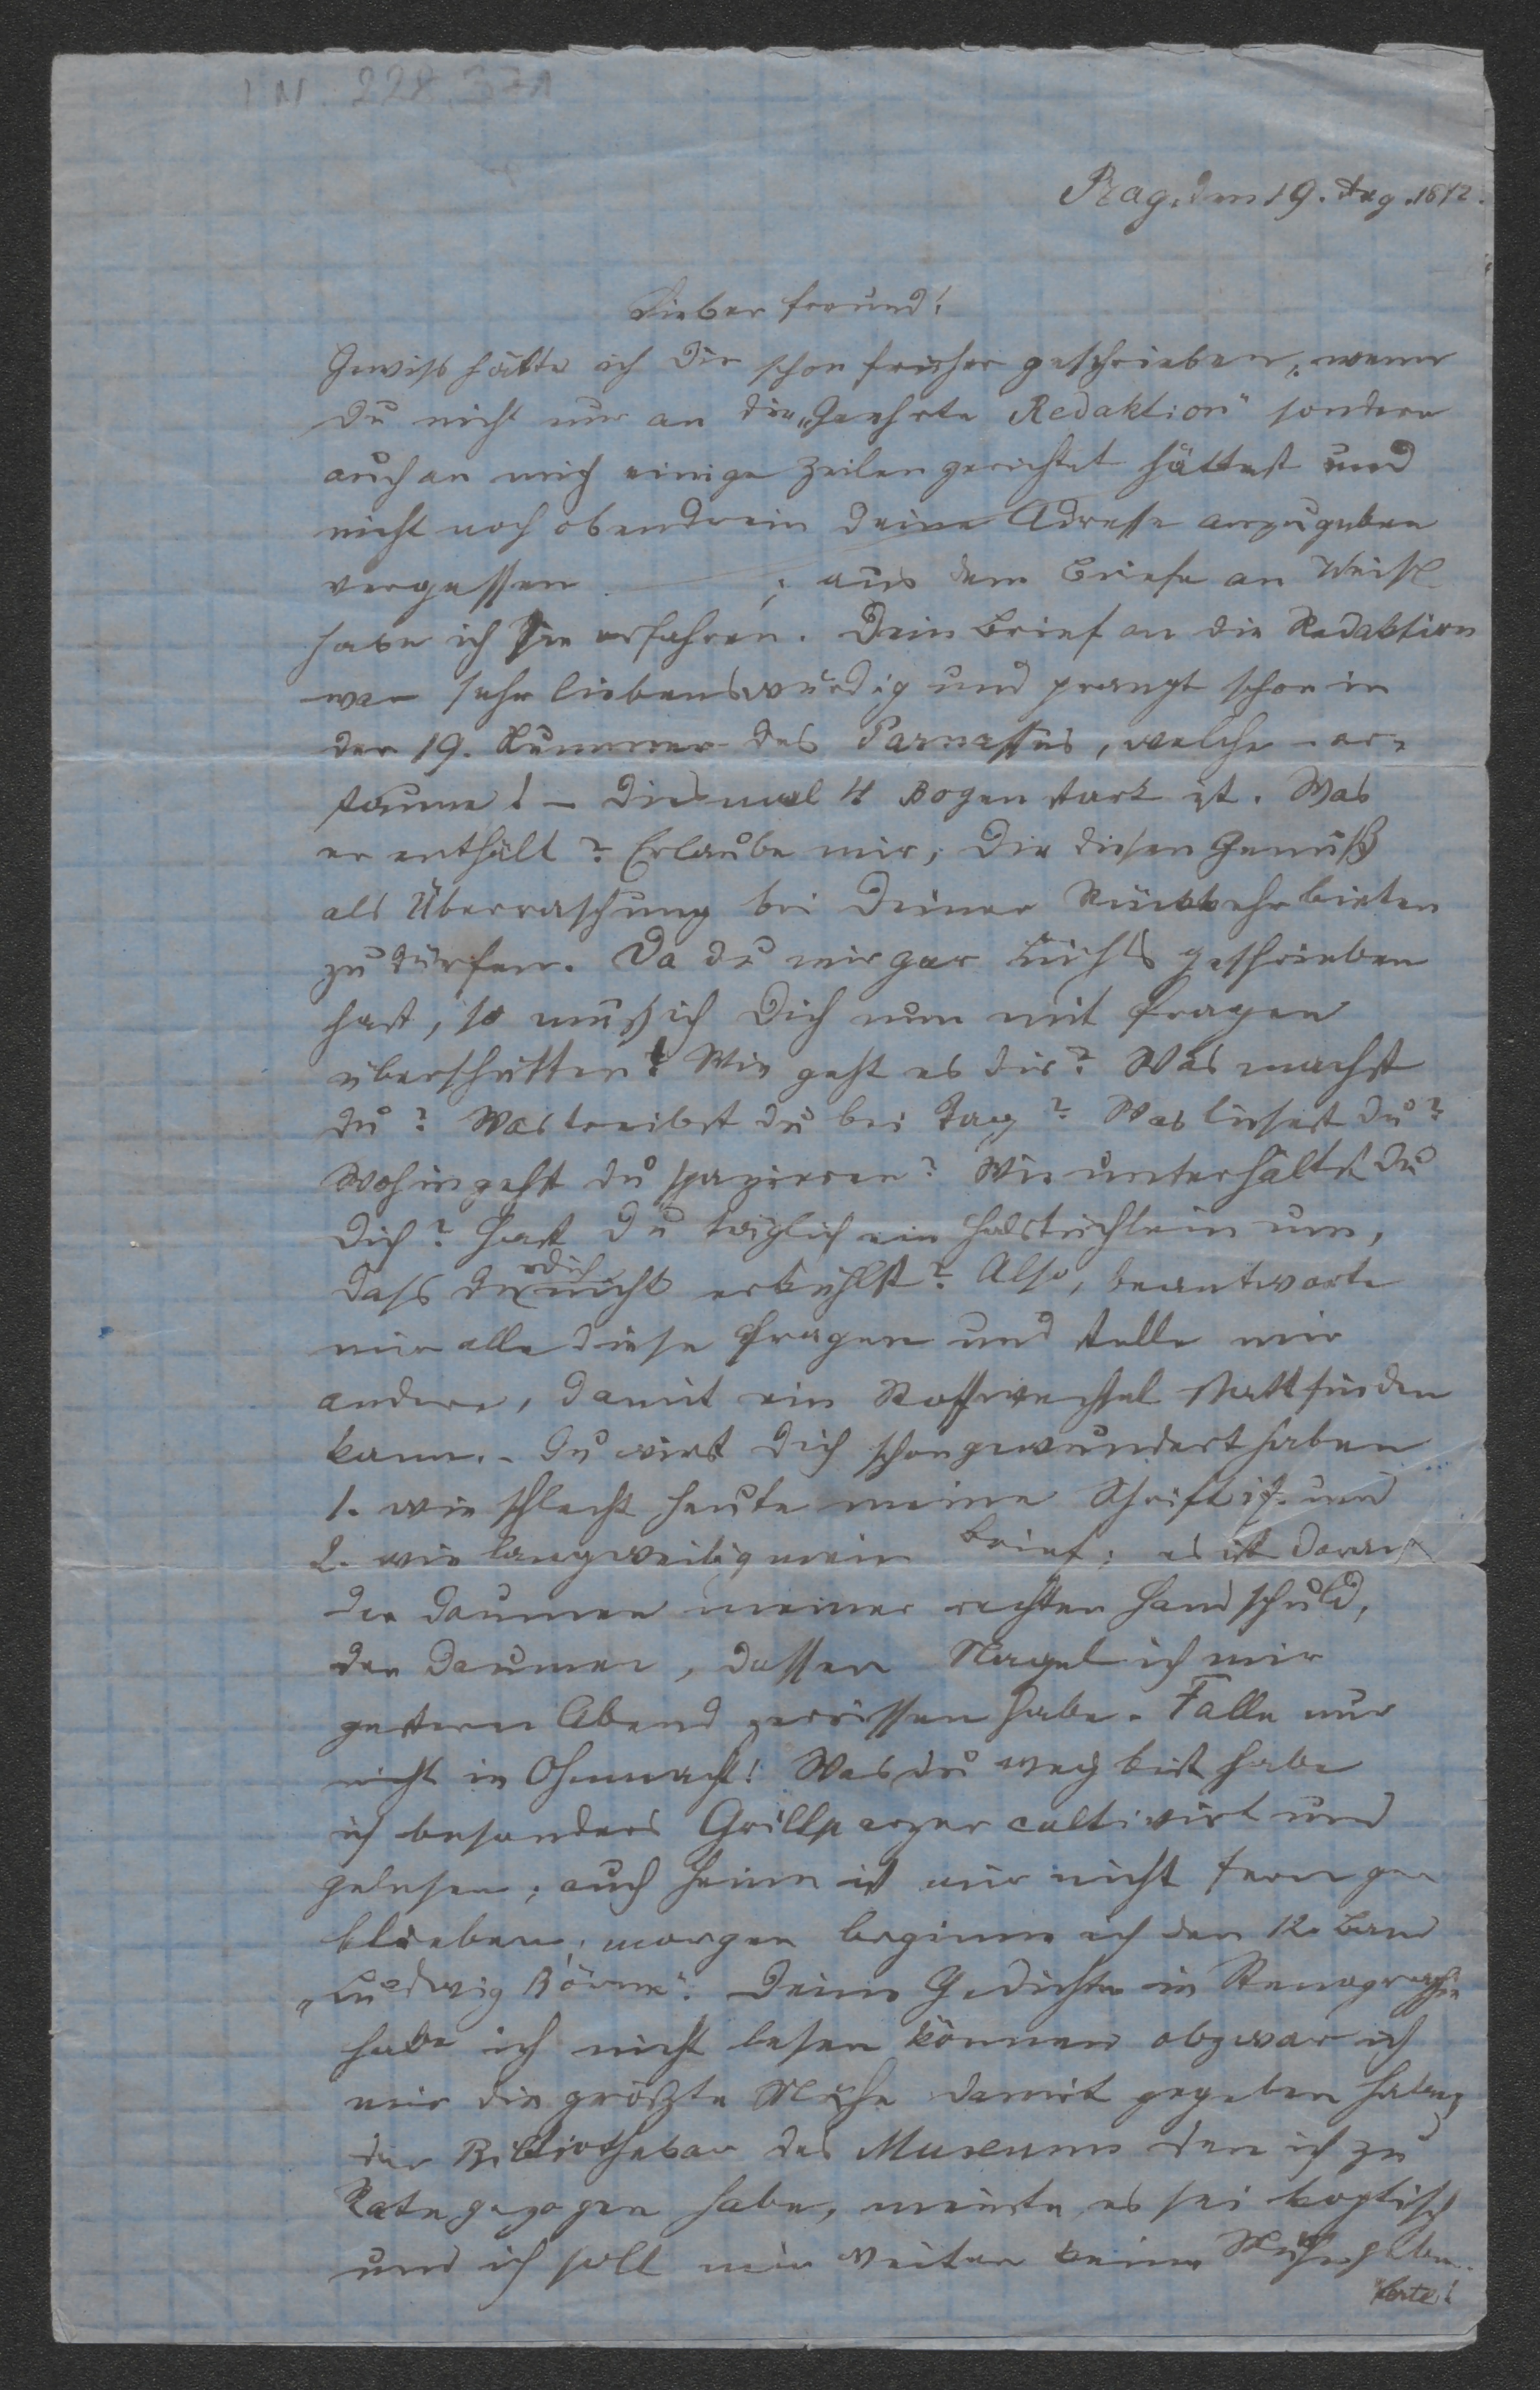 I N. 228.371
Prag, den 19. Aug. 1872.
Lieber Freund!
Gewiss hätte ich Dir schon früher geschrieben, wenn
Du nicht nur an die „Geehrte Redaktion" sondern
auch an mich einige Zeilen gerichtet hättest und
nicht noch obendrein Deine Adresse anzugeben
vergessen ; aus dem Briefe an Weisl
habe ich sie erfahren. Dein Brief an die Redaktion
war sehr liebenswürdig und prangt schon in
der 19. Nummer des Parnassus, welche – er-
staune! – diesmal 4 Bogen stark ist. Was
er enthält? Erlaube mir, Dir diesen Genuß
als Überraschung bei Deiner Rückkehr bieten
zu dürfen. Da du mir gar nichts geschrieben
hast, so muß ich Dich nun mit Fragen
überschütten! Wie geht es dir? Was machst
du? Was treibst du bei Tag? Was liesest du?
Wohin gehst du spazieren? Wie unterhältst Du
Dich? Hast Du täglich ein Halstüchlein um,
dass du dich nicht erkühlst? Also, beantworte
mir alle diese Fragen und stelle mir
andere, damit ein Stoffwechsel stattfinden
kann. – Du wirst Dich schon gewundert haben
1. wie schlecht heute meine Schrift ist und
2. wie langweilig mein Brief; es ist daran
der Daumen meiner rechten Hand schuld,
der Daumen, dessen Nagel ich mir
gestern Abend zerrissen habe. Falle nur
nicht in Ohnmacht! Was du weg bist habe
ich besonders Grillparzer cultivirt und
gelesen; auch Heine ist mir nicht fern ge
blieben; morgen beginne ich den 12. Band
„Ludwig Börne". Deine Gedichte in Stenographie
habe ich nicht lesen können obzwar ich
mir die größte Mühe damit gegeben habe;
der Bibliothekar des Museums den ich zu
Rate gezogen habe, meinte, es sei koptisch
und ich soll mir weiter keine Mühe geben.
Verte!